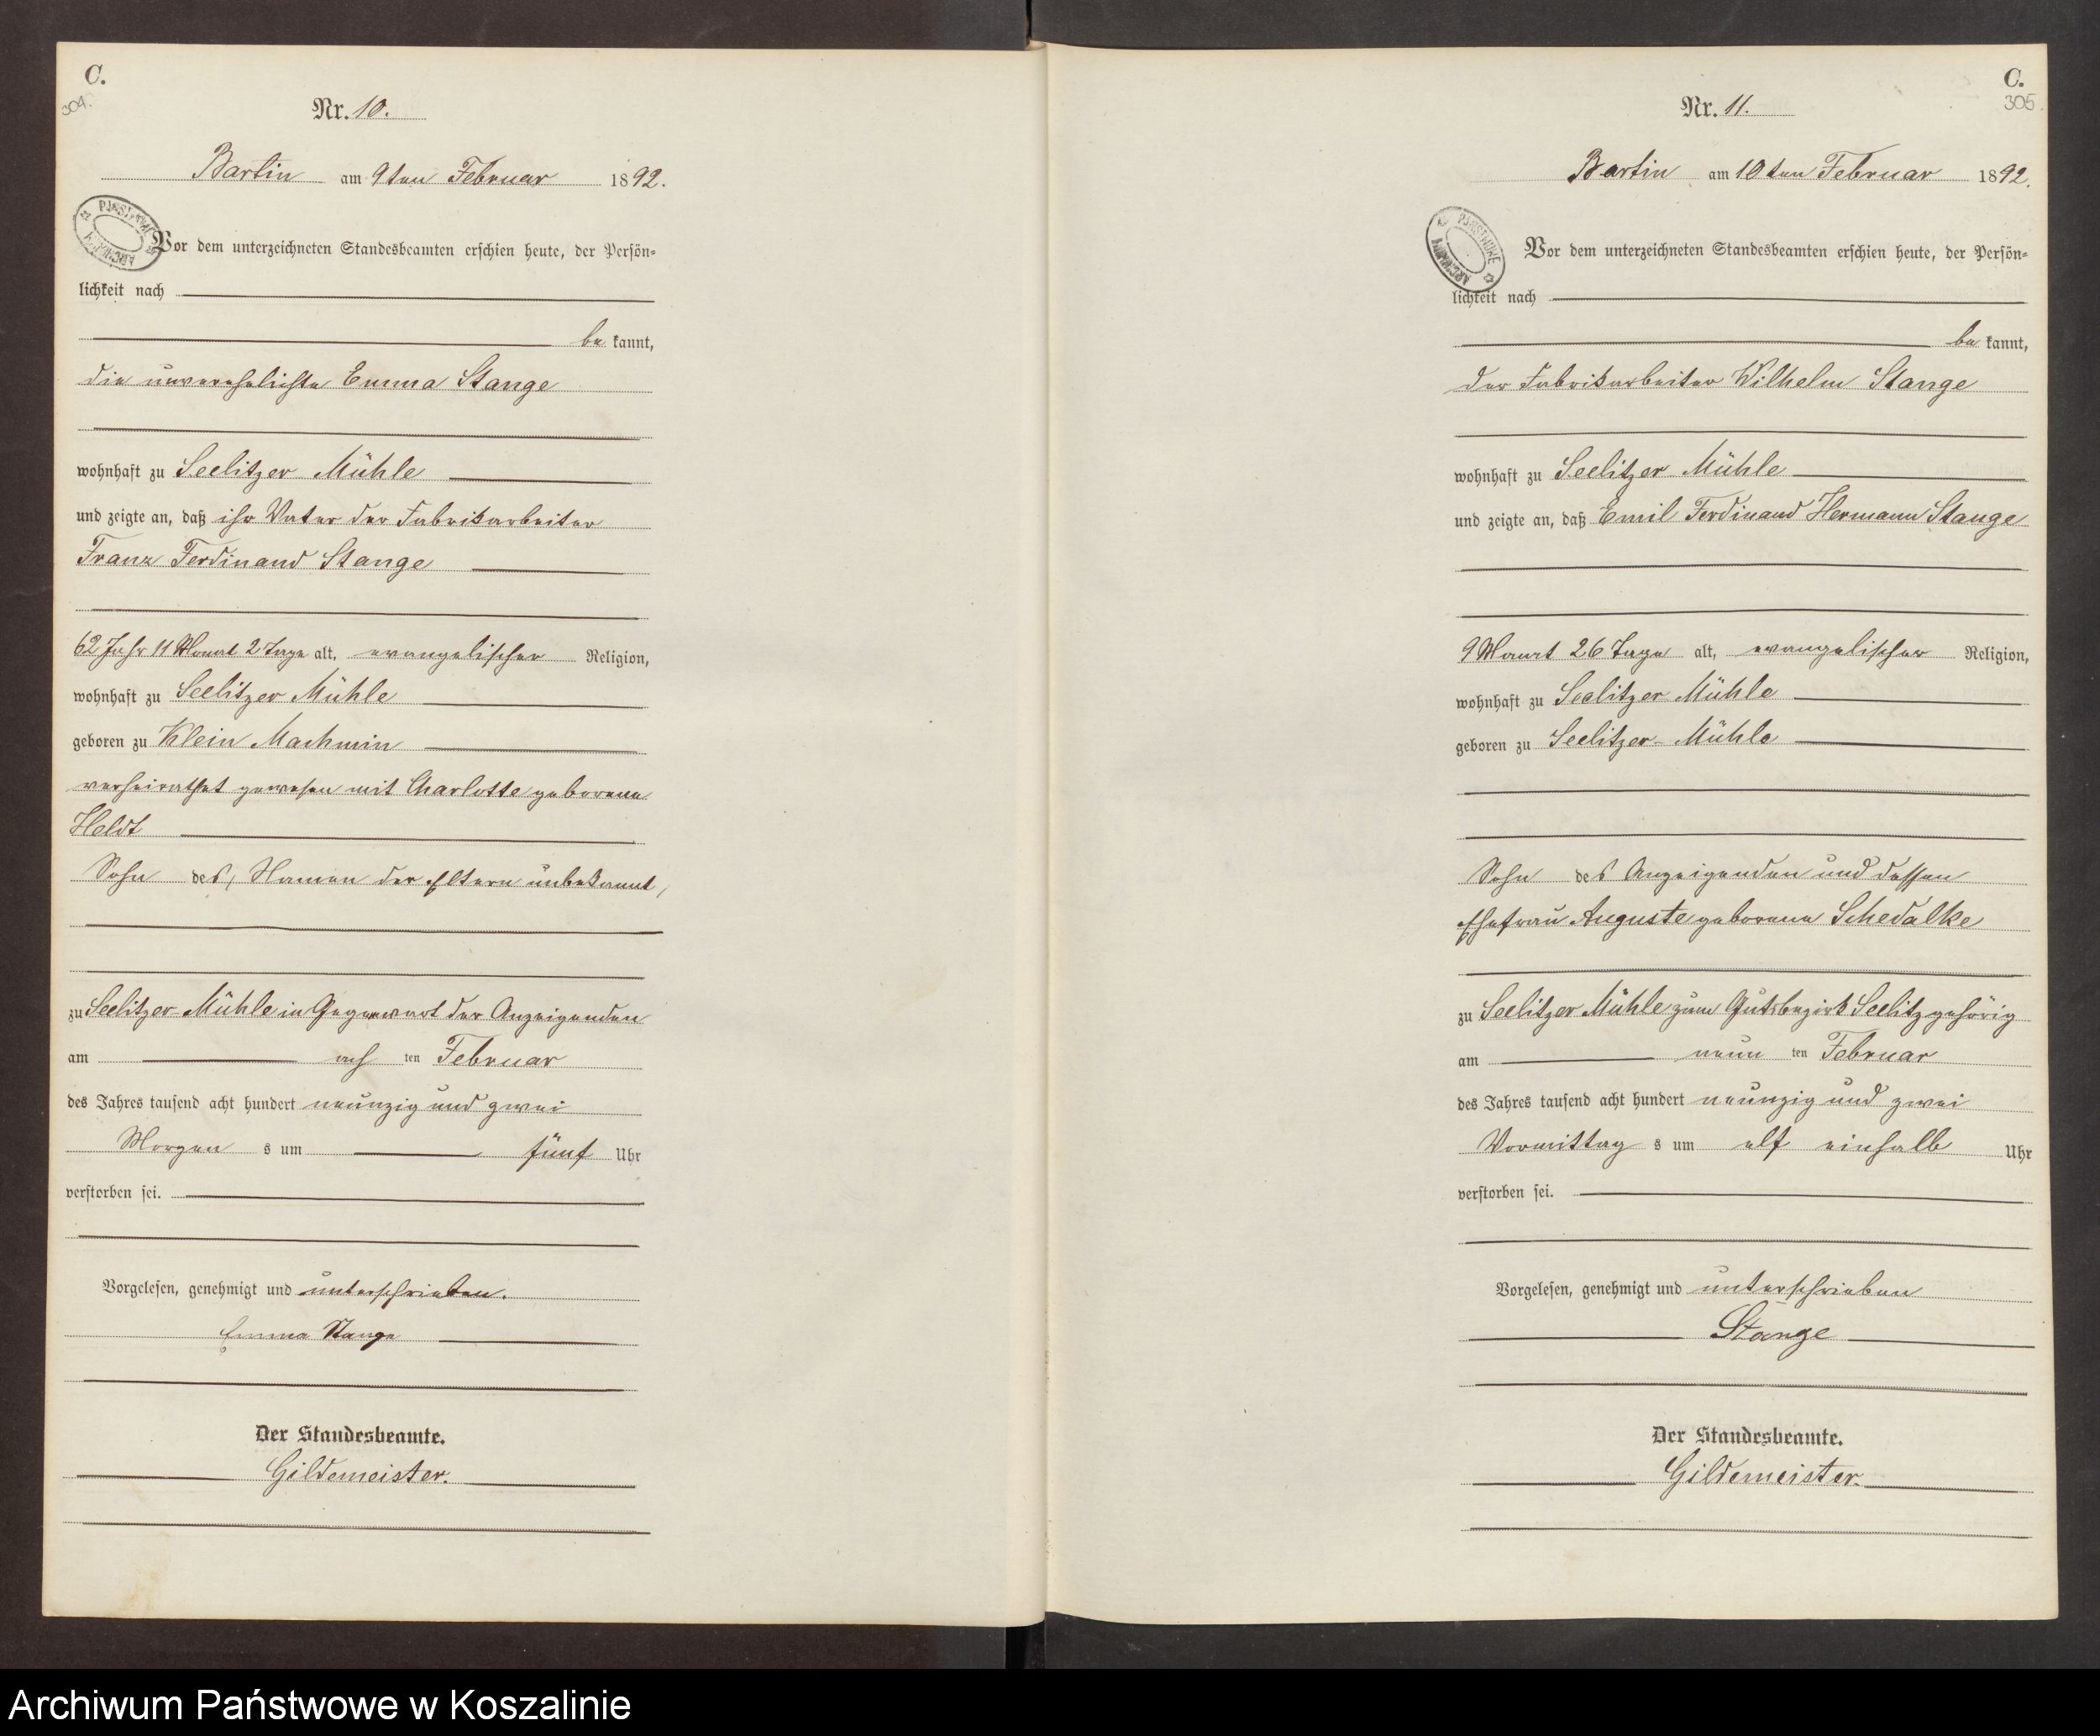 C.
304.
Nr. 10.
Bartin am 9ten Februar 1892.
Vor dem unterzeichneten Standesbeamten erschien heute, der Persön=
lichkeit nach
be kannt,
die unverehelichte Emma Stange
wohnhaft zu Seelitzer Mühle
und zeigte an, daß ihr Vater der Fabrikarbeiter
Franz Ferdinand Stange
62 Jahr 11 Monat 2 Tage alt, evangelischer Religion,
wohnhaft zu Seelitzer Mühle
geboren zu Klein Machmin
verheirathet gewesen mit Charlotte geborene
Heldt
Sohn des, Namen der Eltern unbekannt,
zu Seelitzer Mühle in Gegenwart der Anzeigenden
am ach ten Februar
des Jahres tausend acht hundert neunzig und zwei
Morgen s um fünf Uhr
verstorben sei.
Vorgelesen, genehmigt und unterschrieben.
Emma Stange
Der Standesbeamte.
Gildemeister.
C.
305.
Nr. 11.
Bartin am 10ten Februar 1892.
Vor dem unterzeichneten Standesbeamten erschien heute, der Persön=
lichkeit nach
be kannt,
der Fabrikarbeiter Wilhelm Stange
wohnhaft zu Seelitzer Mühle
und zeigte an, daß Emil Ferdinand Hermann Stange
9 Monat 26 Tage alt, evangelischer Religion,
wohnhaft zu Seelitzer Mühle
geboren zu Seelitzer-Mühle
Sohn des Anzeigenden und dessen
Ehefrau Auguste geborene Schedalke
zu Seelitzer Mühle zum Gutsbezirk Seelitz gehörig
am neun ten Februar
des Jahres tausend acht hundert neunzig und zwei
Vormittag s um elf einhalb Uhr
verstorben sei.
Vorgelesen, genehmigt und unterschrieben
Stange
Der Standesbeamte.
Gildemeister.
Archiwum Państwowe w Koszalinie